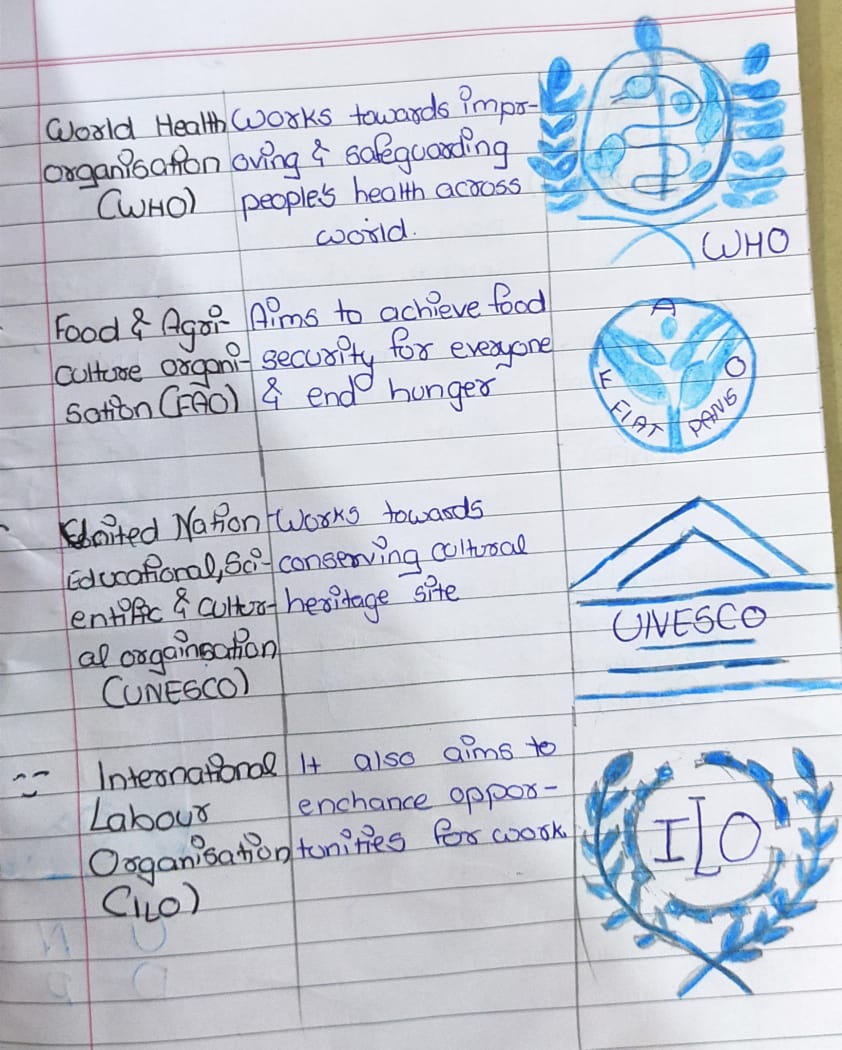 World Health
organisation
(WHO)
Works towards impr-
oving & safeguarding
people's health across
world.
WHO
Food & Agri-
culture organi-
sation (FAO)
Aims to achieve food
security for everyone
& end hunger
A
F
O
FIAT PANIS
United Nation
Educational, Sci-
entific & Cultur-
al orgainsation
(UNESCO)
Works towards
conserving cultural
heritage site
UNESCO
International
Labour
Organisation
(ILO)
It also aims to
enchance oppor-
tunities for work.
ILO